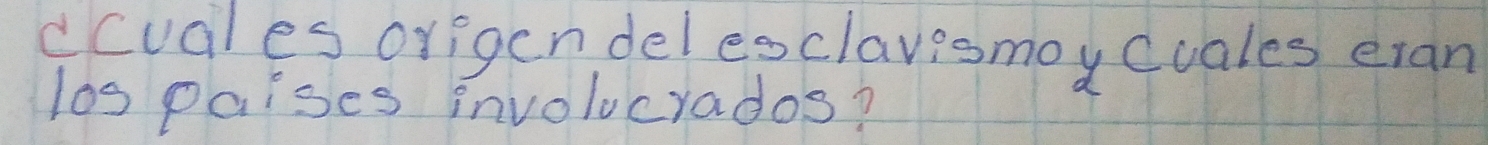 ¿Cual es origen del esclavismo y cuales eran
los paises involucrados?